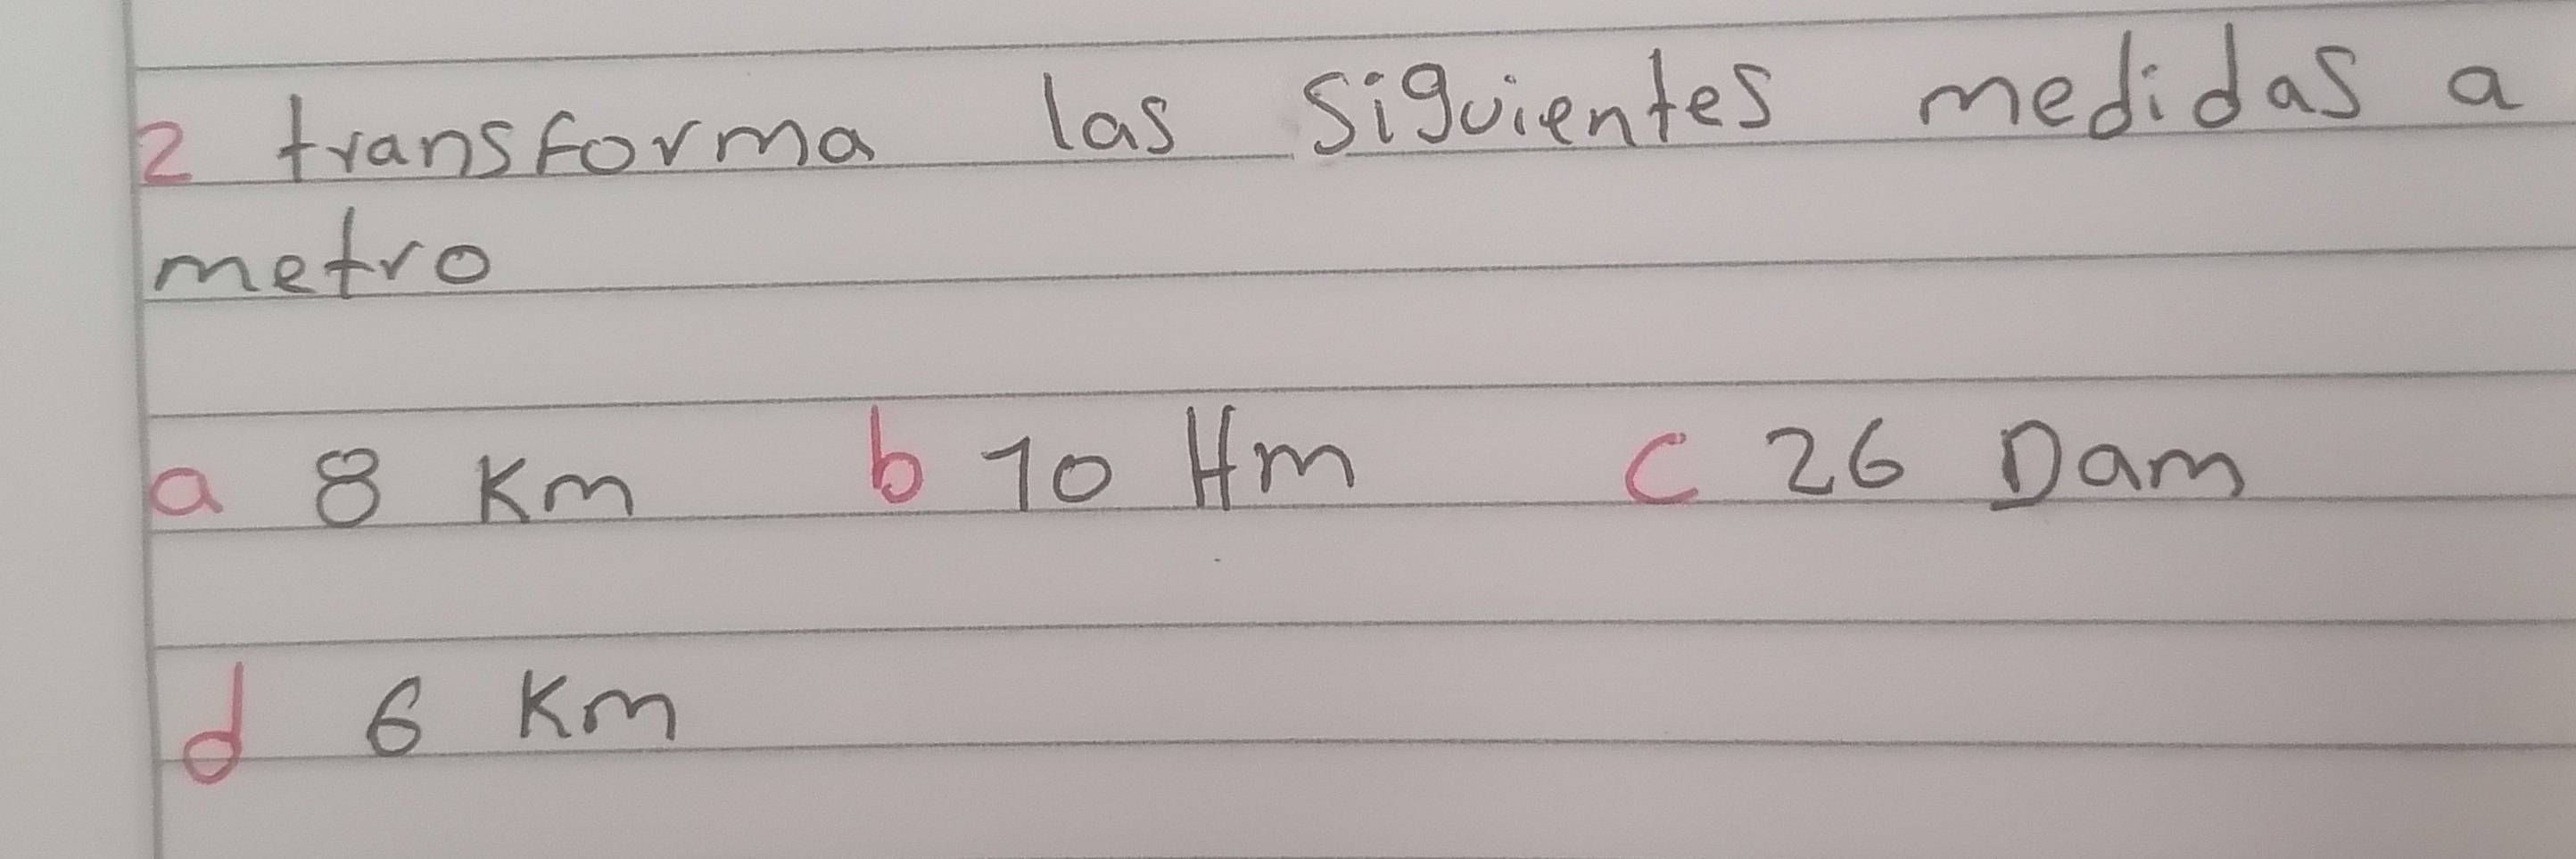 2 transforma las siguientes medidas a
metro
a 8 Km b 10 Hm c 26 Dam
d 6 Km